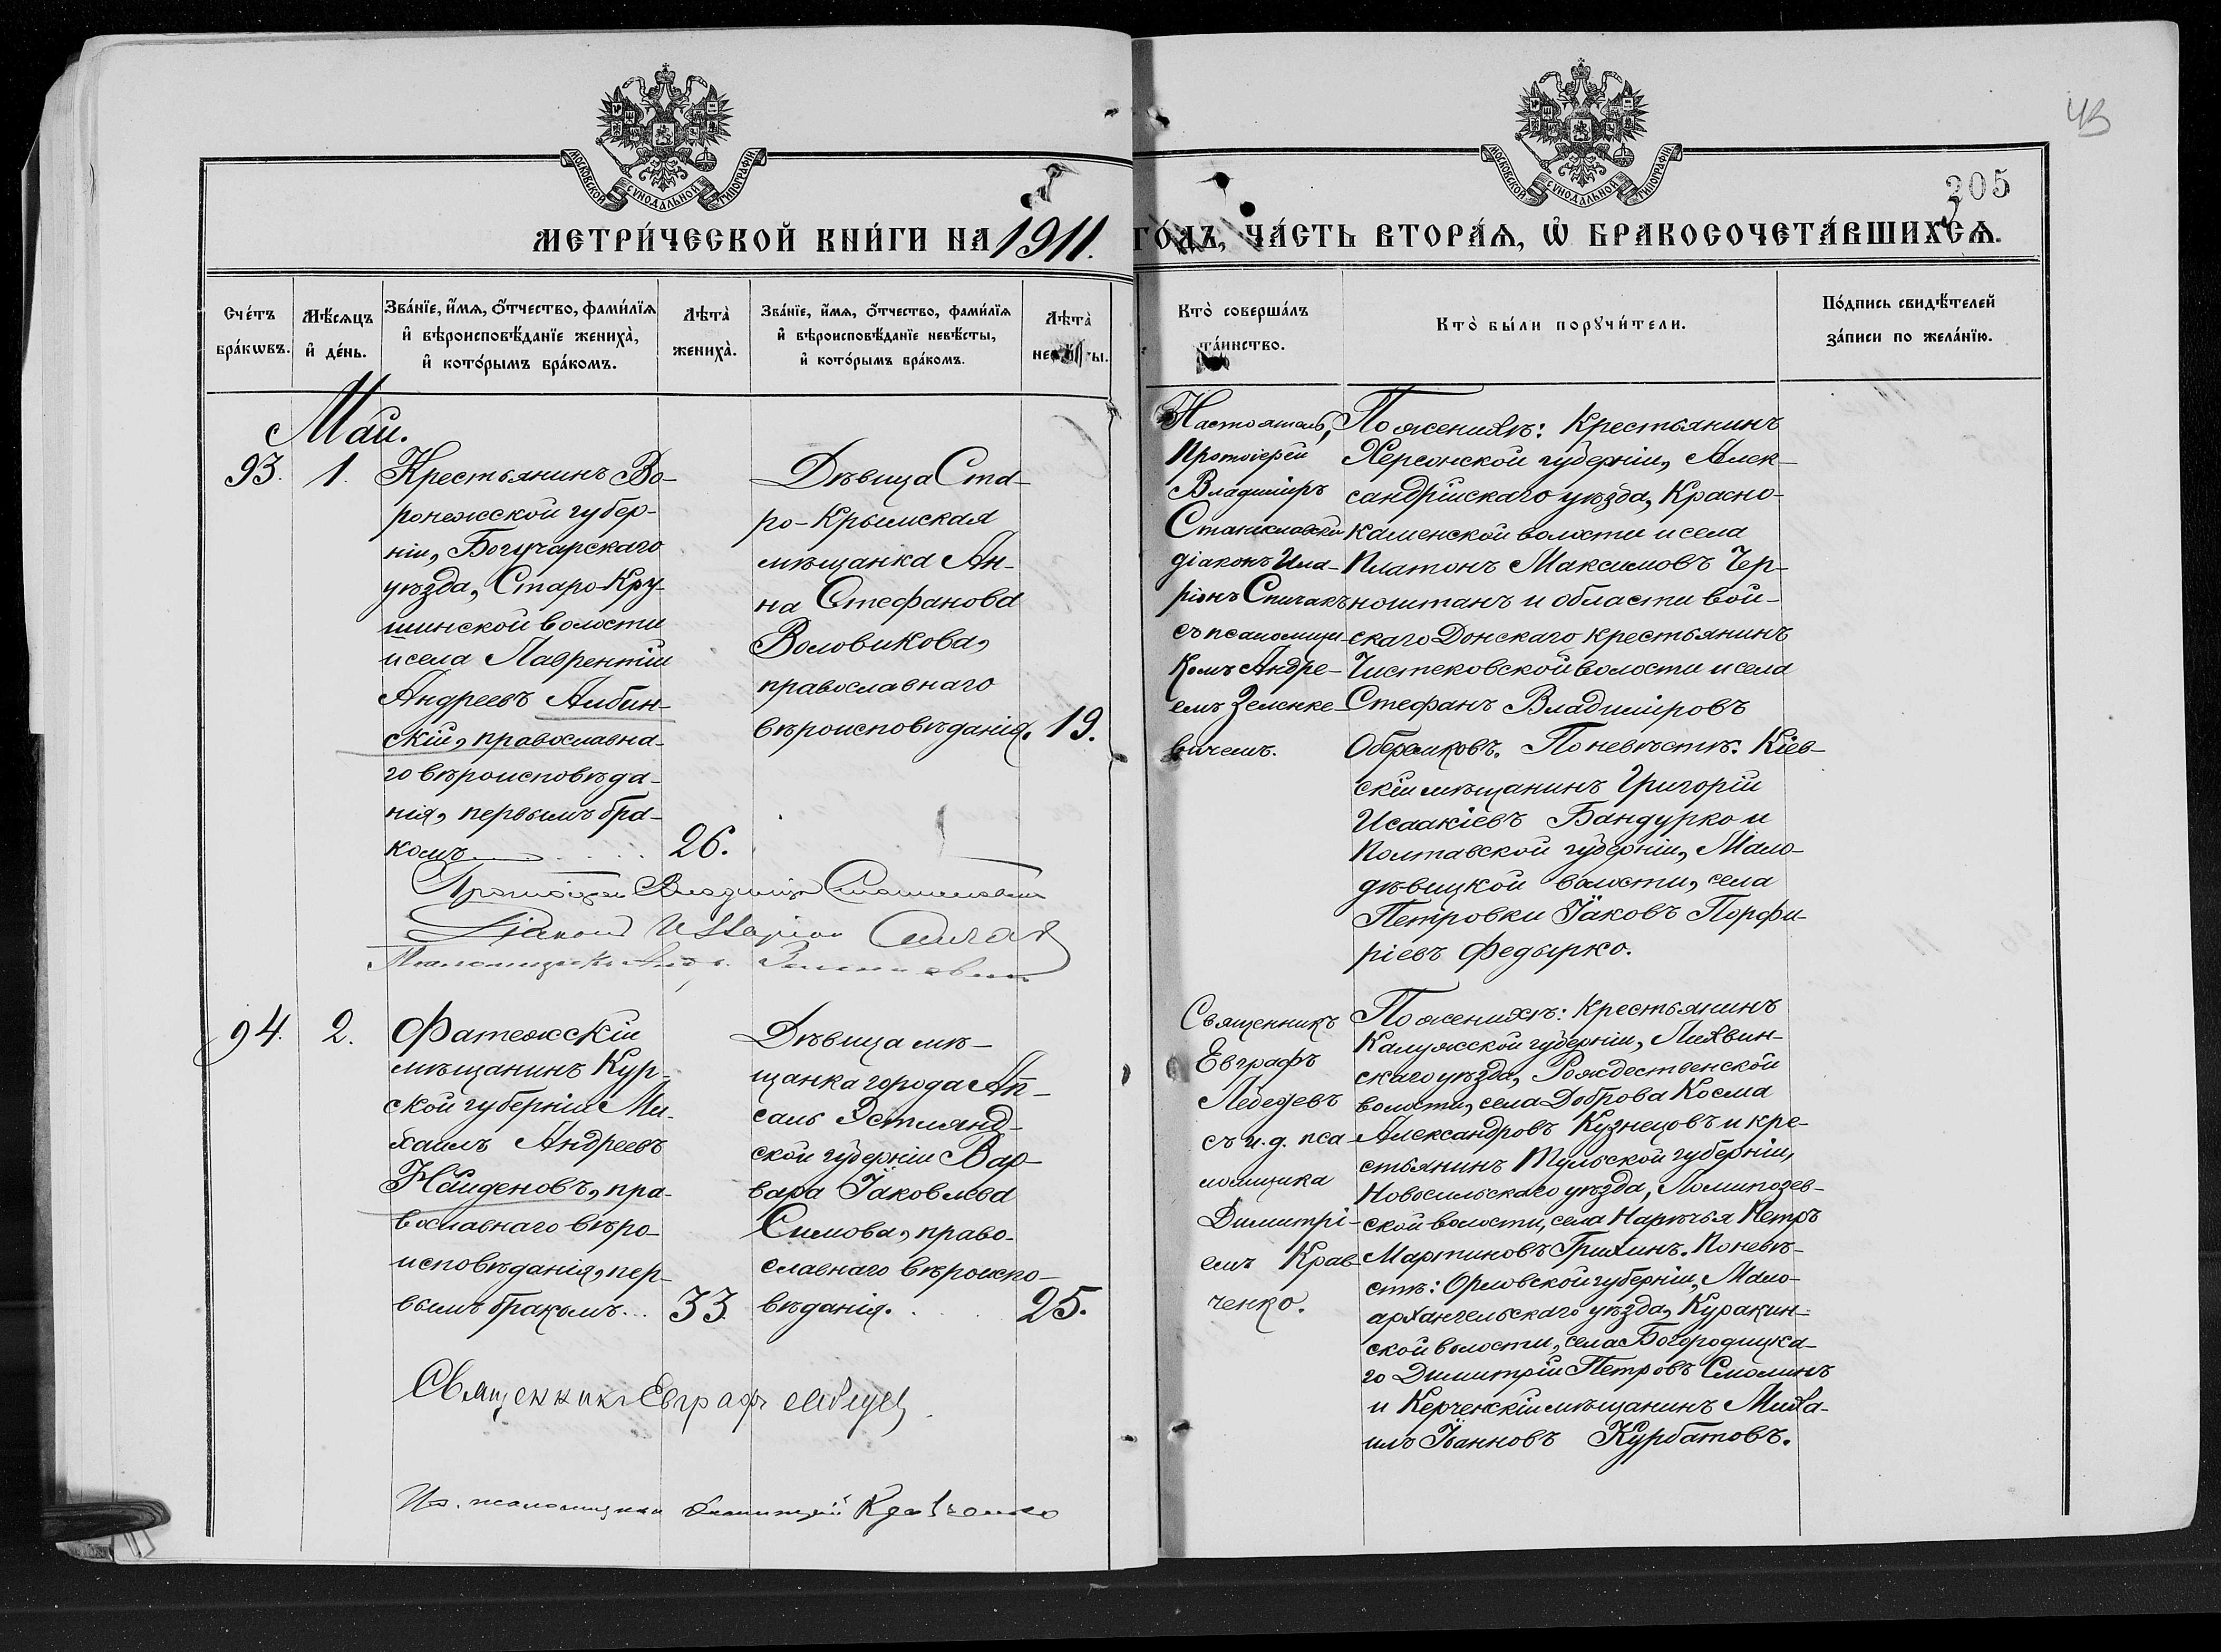 43
205
МОСКОВСКОЙ СУНОДАЛЬНОЙ ТИПОГРАФІИ
МОСКОВСКОЙ СУНОДАЛЬНОЙ ТИПОГРАФІИ
МЕТРИ́ЧЕСКОЙ КНИ́ГИ НА 1911. ГО́ДЪ, ЧА́СТЬ ВТОРА́Ѧ, Ѡ҆ БРАКОСОЧЕТА́ВШИХСѦ.
Сче́тъ бра́кѡвъ.
Мѣ́сѧцъ и҆ де́нь.
Зва́нїе, и҆́мѧ, ѻ҆́тчество, фами́лїѧ
и҆ вѣроисповѣ́данїе жениха̀,
и҆ кото́рымъ бра́комъ.
Лѣта̀ жениха̀.
Зва́нїе, и҆́мѧ, ѻ҆́тчество, фами́лїѧ
и҆ вѣроисповѣ́данїе невѣ́сты,
и҆ кото́рымъ бра́комъ.
Лѣта̀ невѣ́сты.
Кто̀ соверша́лъ та́инство.
Кто̀ бы́ли порꙋчи́тели.
По́дпись свидѣ́телей
за́писи по жела́нїю.
Май.
93. 1.
Крестьянинъ Во-
ронежской губер-
ніи, Богучарскаго
уѣзда, Старо-Кру-
шинской волости
и села Лаврентій
Андреевъ Албин-
скій, православна-
го вѣроисповѣда-
нія, первымъ бра-
комъ 26.
Дѣвица Ста-
ро-Крымская
мѣщанка Ан-
на Стефанова
Воловикова,
православнаго
вѣроисповѣданія. 19.
Настоятель,
Протоіерей
Владиміръ
Станиславскій
діаконъ Ила-
ріонъ Спичакъ
съ псаломщи-
комъ Андре-
емъ Зеленке-
вичемъ.
По женихѣ: Крестьянинъ
Херсонской губерніи, Алек-
сандрійскаго уѣзда, Красно-
каменской волости и села
Платонъ Максимовъ Чер-
ноштанъ и области Вой-
скаго Донскаго крестьянинъ
Чистековской волости и села
Стефанъ Владиміровъ
Оберемковъ. По невѣстѣ: Кіев-
скій мѣщанинъ Григорій
Исаакіевъ Бандурко и
Полтавской губерніи, Мало-
дѣвицкой волости, села
Петровки Іаковъ Порфи-
ріевъ Федырко.
Протоіерей Владиміръ Станиславскій
Діаконъ Илларіонъ Спичакъ
Псаломщикъ Андр. Зеленкевичъ
94. 2.
Фатежскій
мѣщанинъ Кур-
ской губерніи Ми-
хаилъ Андреевъ
Найденовъ, пра-
вославнаго вѣро-
исповѣданія, пер-
вымъ бракомъ... 33.
Дѣвица мѣ-
щанка города Ап-
саль Эстлянд-
ской губерніи Вар-
вара Іаковлева
Симова, право-
славнаго вѣроиспо-
вѣданія. 25.
Священникъ
Евграфъ
Лебедевъ
съ и. д. пса-
ломщика
Димитрі-
емъ Крав-
ченко.
По женихѣ: крестьянинъ
Калужской губерніи, Лихвин-
скаго уѣзда, Рождественской
волости, села Доброва Косма
Александровъ Кузнецовъ и кре-
стьянинъ Тульской губерніи,
Новосильскаго уѣзда, Ломипозев-
ской волости, села Нарѣчья Петръ
Мартиновъ Гришинъ. По невѣ-
стѣ: Орловской губерніи, Мало-
архангельскаго уѣзда, Куракин-
ской волости, села Богородицка-
го Димитрій Петровъ Смолинъ
и Керченскій мѣщанинъ Миха-
илъ Іоанновъ Курбатовъ.
Священникъ Евграфъ Лебедевъ
И. д. псаломщика Димитрій Кравченко